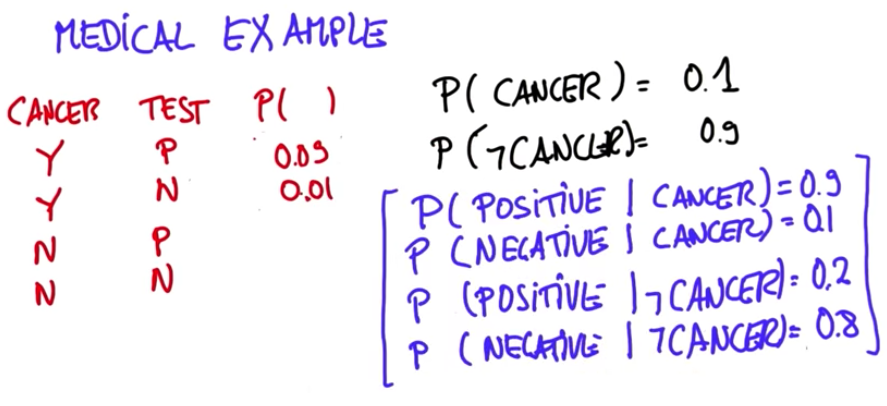 MEDICAL EXAMPLE
CANCER TEST P( )
Y P 0.09
Y N 0.01
N P
N N
P( CANCER ) = 0.1
P (¬CANCER)= 0.9
P( POSITIVE | CANCER) = 0.9
P (NEGATIVE | CANCER) = 0.1
P (POSITIVE |¬CANCER)= 0.2
P (NEGATIVE | ¬CANCER)= 0.8